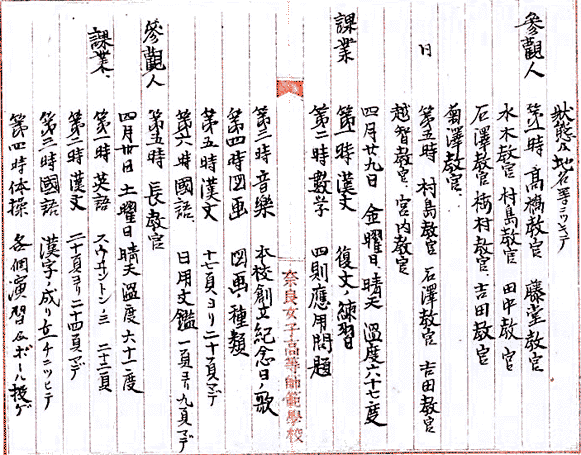 状態及地名等ニツキテ
參觀人 第一時 高橋教官 藤堂教官
水木教官 村島教官 田中教官
石澤教官 梅村教官 吉田教官
菊澤教官
日 第五時 村島教官 石澤教官 吉田教官
越智教官 宮内教官
四月廿九日 金曜日 晴天 溫度六十七度
課業 第一時 漢文 復文ノ練習
第二時 數学 四則應用問題
奈良女子高等師範學校
第三時 音樂 本校創立紀念日ノ歌
第四時 図画 図画ノ種類
第五時 漢文 十七頁ヨリ二十頁マデ
第六時 國語 日用文鑑 一頁ヨリ九頁マデ
參觀人 第五時 長教官
四月卅日 土曜日 晴天 溫度六十二度
課業 第一時 英語 二十二頁
第二時 漢文 二十頁ヨリ二十四頁マデ
第三時 國語 漢字ノ成リ立チニツヒテ
第四時 体操 各個演習及ボール投ゲ